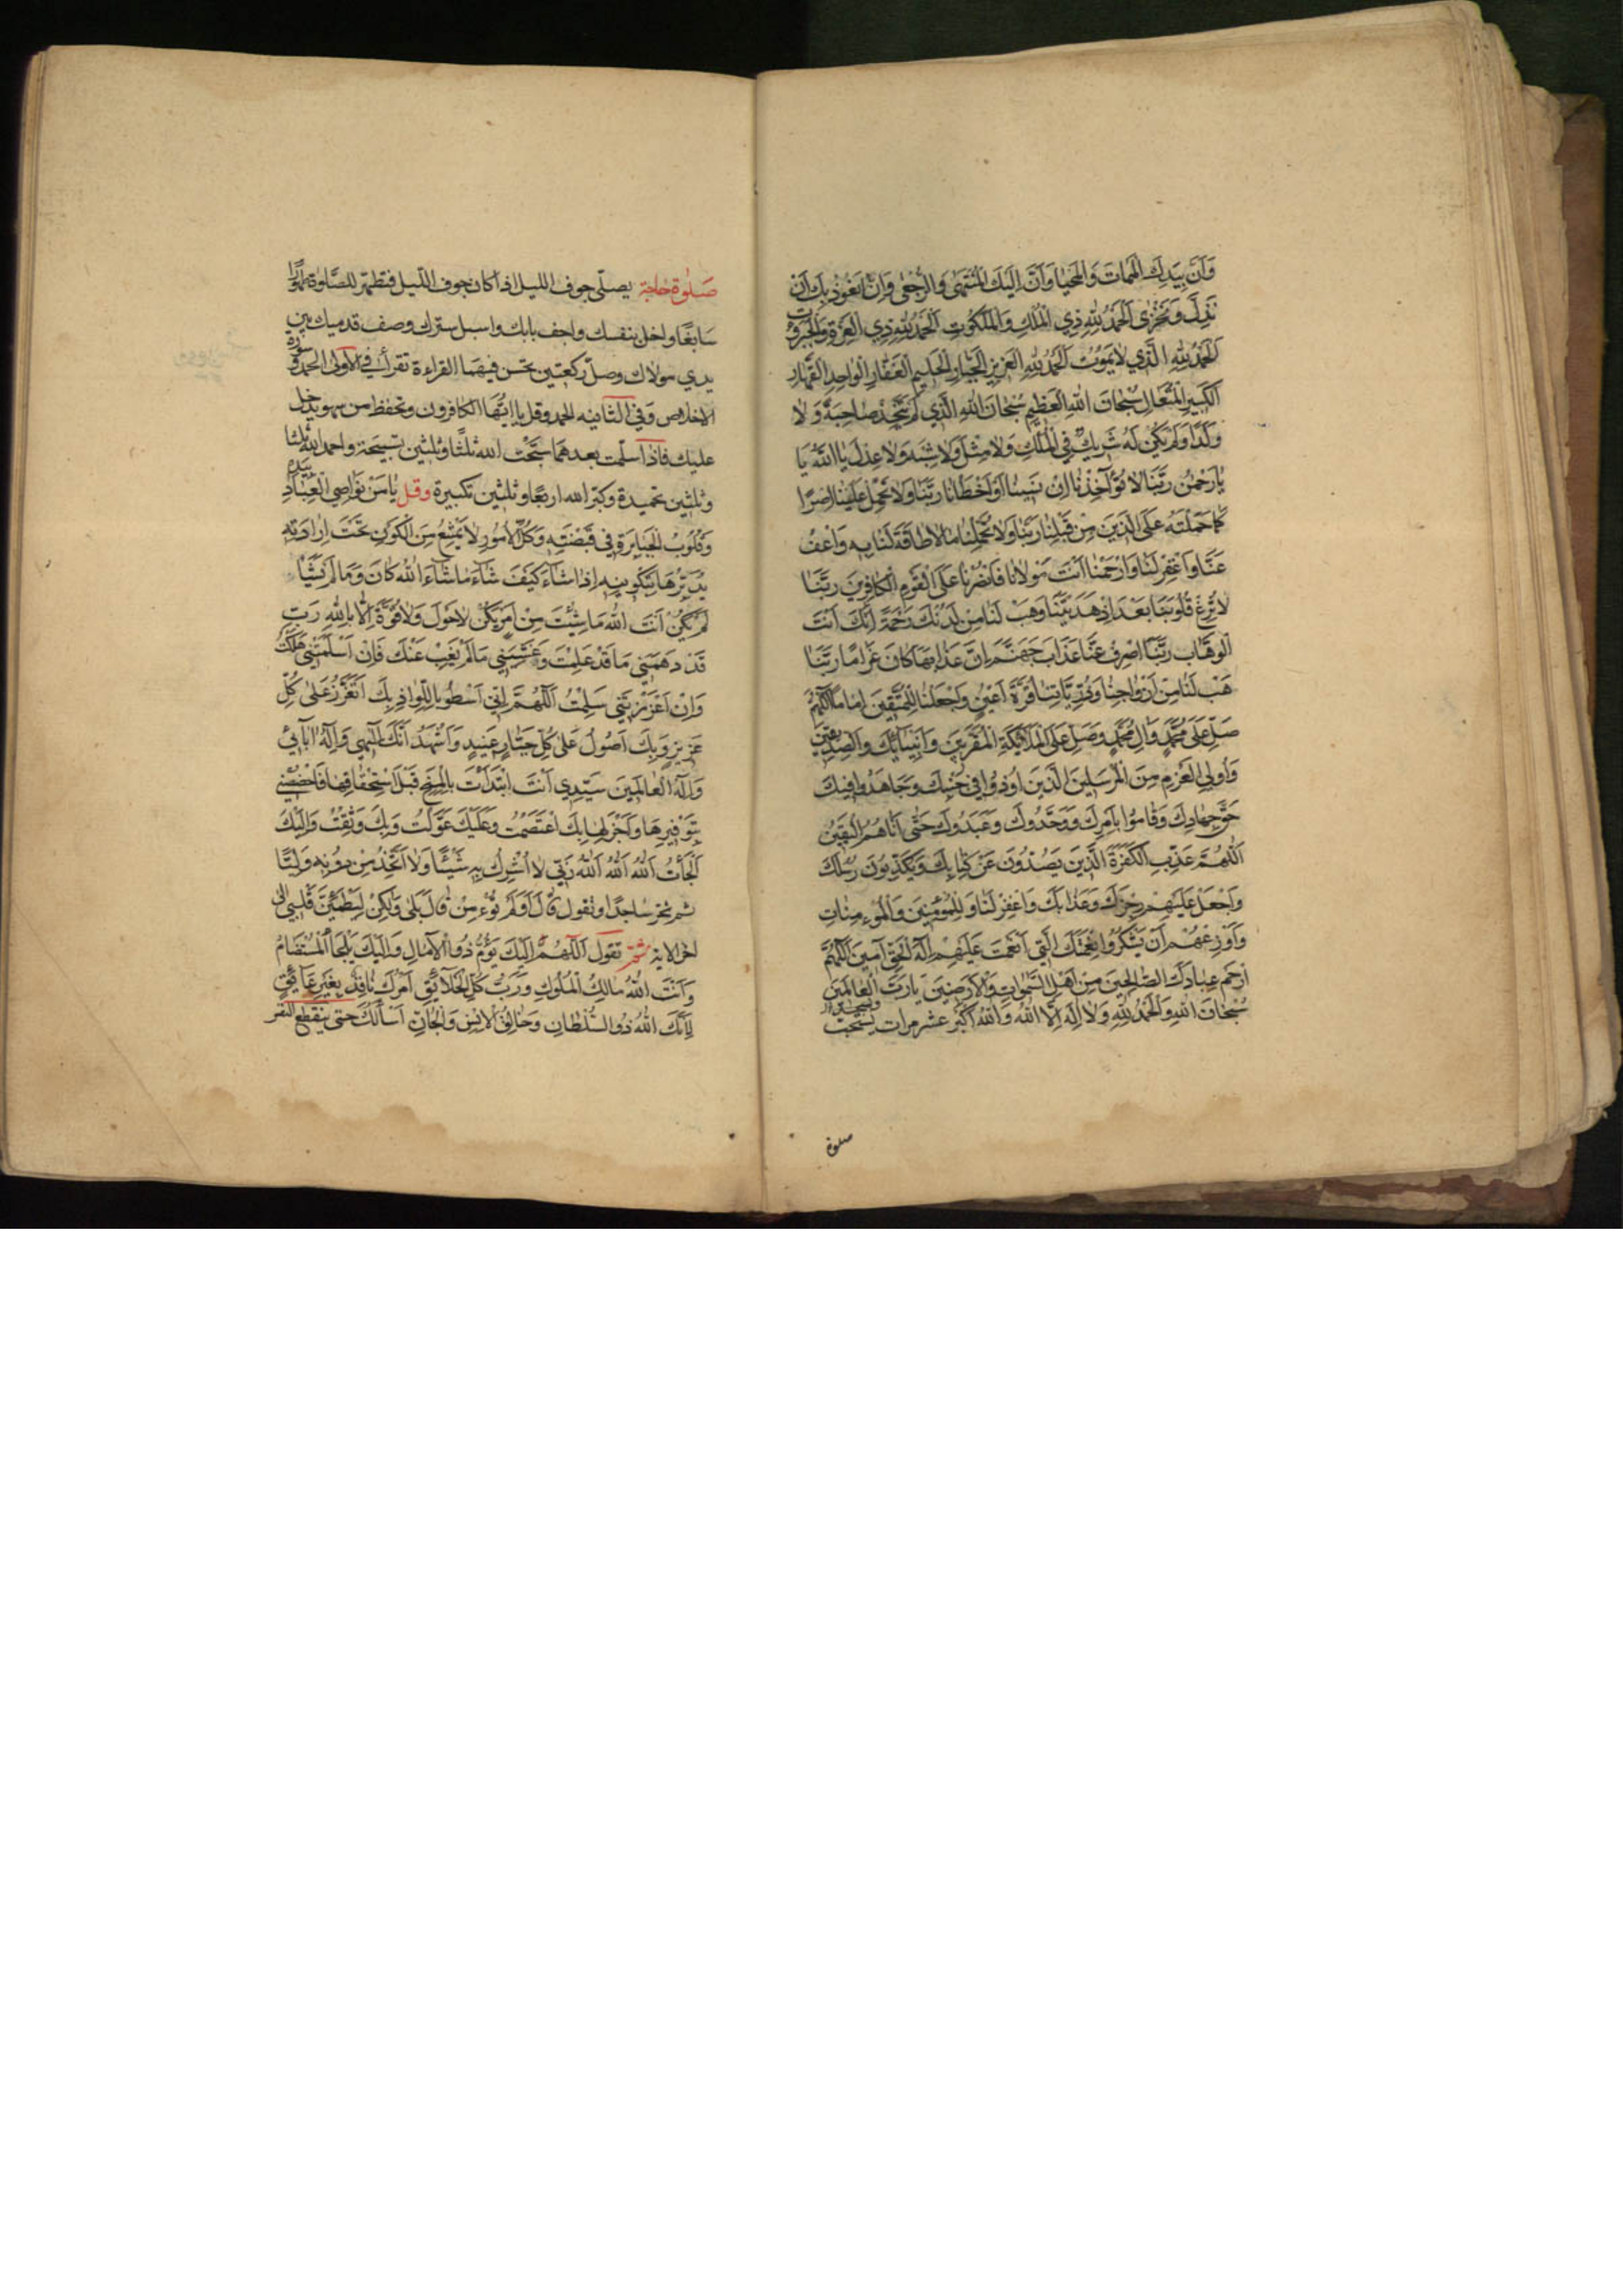 وَاَنَّ بِيَدِكَ الْمَمَاتَ وَالْمَحْيَا وَاَنَّ اِلَيْكَ الْمُنْتَهٰى وَالرُّجْعٰى وَاِنَّا نَعُوذُ بِكَ اَنْ
نَذِلَّ وَنَخْزٰى اَلْحَمْدُ لِلّٰهِ ذِي الْمُلْكِ وَالْمَلَكُوتِ اَلْحَمْدُ لِلّٰهِ ذِي الْعِزَّةِ وَالْجَبَرُوتِ
اَلْحَمْدُ لِلّٰهِ الَّذِي لَا يَمُوتُ اَلْحَمْدُ لِلّٰهِ الْعَزِيزِ الْجَبَّارِ الْحَلِيمِ الْغَفَّارِ الْوَاحِدِ الْقَهَّارِ
الْكَبِيرِ الْمُتَعَالِ سُبْحَانَ اللهِ الْعَظِيمِ سُبْحَانَ اللهِ الَّذِي لَمْ يَتَّخِذْ صَاحِبَةً وَلَا
وَلَدًا وَلَمْ يَكُنْ لَهُ شَرِيكٌ فِي الْمُلْكِ وَلَا مِثْلَ وَلَا شِبْهَ وَلَا عِدْلَ يَا اَللهُ يَا
يَا رَحْمٰنُ رَبَّنَا لَا تُؤَاخِذْنَا اِنْ نَسِينَا اَوْ اَخْطَأْنَا رَبَّنَا وَلَا تَحْمِلْ عَلَيْنَا اِصْرًا
كَمَا حَمَلْتَهُ عَلَى الَّذِينَ مِنْ قَبْلِنَا رَبَّنَا وَلَا تُحَمِّلْنَا مَا لَا طَاقَةَ لَنَا بِهِ وَاعْفُ
عَنَّا وَاغْفِرْ لَنَا وَارْحَمْنَا اَنْتَ مَوْلَانَا فَانْصُرْنَا عَلَى الْقَوْمِ الْكَافِرِينَ رَبَّنَا
لَا تُزِغْ قُلُوبَنَا بَعْدَ اِذْ هَدَيْتَنَا وَهَبْ لَنَا مِنْ لَدُنْكَ رَحْمَةً اِنَّكَ اَنْتَ
الْوَهَّاب رَبَّنَا اصْرِفْ عَنَّا عَذَابَ جَهَنَّمَ اِنَّ عَذَابَهَا كَانَ غَرَامًا رَبَّنَا
هَبْ لَنَا مِنْ اَزْوَاجِنَا وَذُرِّيَّاتِنَا قُرَّةَ اَعْيُنٍ وَاجْعَلْنَا لِلْمُتَّقِينَ اِمَامًا اَللّٰهُمَّ
صَلِّ عَلٰى مُحَمَّدٍ وَاٰلِ مُحَمَّدٍ وَصَلِّ عَلَى الْمَلَائِكَةِ الْمُقَرَّبِينَ وَاَنْبِيَائِكَ وَالصِّدِّيقِينَ
وَاُولِي الْعَزْمِ مِنَ الْمُرْسَلِينَ الَّذِينَ اُوذُوا فِي جَنْبِكَ وَجَاهَدُوا فِيكَ
حَقَّ جِهَادِكَ وَقَامُوا بِاَمْرِكَ وَوَحَّدُوكَ وَعَبَدُوكَ حَتّٰى اَتَاهُمُ الْيَقِينُ
اَللّٰهُمَّ عَذِّبِ الْكَفَرَةَ الَّذِينَ يَصُدُّونَ عَنْ كِتَابِكَ وَيُكَذِّبُونَ رُسُلَكَ
وَاجْعَلْ عَلَيْهِمْ رِجْزَكَ وَعَذَابَكَ وَاغْفِرْ لَنَا وَلِلْمُؤْمِنِينَ وَالْمُؤْمِنَاتِ
وَاَوْزِعْهُمْ اَنْ يَشْكُرُوا نِعْمَتَكَ الَّتِي اَنْعَمْتَ عَلَيْهِمْ اِلٰهَ الْحَقِّ اٰمِينَ اَللّٰهُمَّ
ارْحَمْ عِبَادَكَ الصَّالِحِينَ مِنْ اَهْلِ السَّمٰوَاتِ وَالْاَرَضِينَ يَا رَبَّ الْعَالَمِينَ
سُبْحَانَ اللهِ وَالْحَمْدُ لِلّٰهِ وَلَا اِلٰهَ اِلَّا اللهُ وَاللهُ اَكْبَرُ عشر مرات
صلوة
صَلٰوة حاجة يصلّى جوف الليل اذا كان جوف اللّيل فتطهّر للصّلوة طهورًا
سابغًا واخل بنفسك واجف بابك واسبل سترك وصف قدميك بين
يدي مولاك وصلّ ركعتين تحسن فيهما القراءة تقرأ في الاولى الحمد وسورة
الاخلاص وفي الثانيه الحمد وقل يا ايّها الكافرون وتحفظ من سهو يدخل
عليك فاذا سلّمت بعدهما سبّحت الله ثلثًا وثلثين تسبيحة واحمد الله ثلثا
وثلثين تحميدة وكبّر الله اربعًا وثلثين تكبيرة وقل يَا مَنْ نَوَاصِي الْعِبَادِ بِيَدِهِ
وَقُلُوبُ الْجَبَابِرَةِ فِي قَبْضَتِهِ وَكُلُّ الْاُمُورِ لَا يَمْتَنِعُ مِنَ الْكَوْنِ تَحْتَ اِرَادَتِهِ
يُدَبِّرُهَا بِتَكْوِينِهِ اِذَا شَاءَ كَيْفَ شَاءَ مَا شَاءَ اللهُ كَانَ وَمَا لَمْ يَشَأْ
لَمْ يَكُنْ اَنْتَ اللهُ مَا شِئْتَ مِنْ اَمْرٍ يَكُنْ لَا حَوْلَ وَلَا قُوَّةَ اِلَّا بِاللهِ رَبِّ
قَدْ دَهَمَنِي مَا قَدْ عَلِمْتَ وَغَشِيَنِي مَا لَمْ يَغِبْ عَنْكَ فَاِنْ اَسْلَمْتَنِي هَلَكْتُ
وَاِنْ اَعْزَزْتَنِي سَلِمْتُ اَللّٰهُمَّ اِنِّي اَسْطُو بِاللِّوَاذِ بِكَ اَتَعَزَّزُ عَلٰى كُلِّ
عَزِيزٍ وَبِكَ اَصُولُ عَلٰى كُلِّ جَبَّارٍ عَنِيدٍ وَاَشْهَدُ اَنَّكَ اِلٰهِي وَاِلٰهُ اٰبَائِي
وَاِلٰهُ الْعَالَمِينَ سَيِّدِي اَنْتَ ابْتَدَأْتَ بِالْمِنَحِ قَبْلَ اسْتِحْقَاقِهَا فَاخْصُصْنِي
بِتَوْفِيرِهَا وَاِجْزَالِهَا بِكَ اعْتَصَمْتُ وَعَلَيْكَ عَوَّلْتُ وَبِكَ وَثِقْتُ وَاِلَيْكَ
لَجَأْتُ اَللهُ اَللهُ اَللهُ رَبِّي لَا اُشْرِكُ بِهِ شَيْئًا وَلَا اَتَّخِذُ مِنْ دُونِهِ وَلِيًّا
ثم تخر ساجدًا وتقول قَالَ اَوَلَمْ تُؤْمِنْ قَالَ بَلٰى وَلٰكِنْ لِيَطْمَئِنَّ قَلْبِي الى
اخر الايه ثم تقول اَللّٰهُمَّ اِلَيْكَ يَؤُمُّ ذَوُوا الْاٰمَالِ وَاِلَيْكَ يَلْجَأُ الْمُسْتَضَامُ
وَاَنْتَ اللهُ مَالِكُ الْمُلُوكِ وَرَبُّ كُلِّ الْخَلَائِقِ اَمْرُكَ نَافِذٌ بِغَيْرِ عَائِقٍ
لِاَنَّكَ اللهُ ذُو السُّلْطَانِ وَخَالِقُ الْاِنْسِ وَالْجَانِّ اَسْأَلُكَ حتى ينقطع النفس